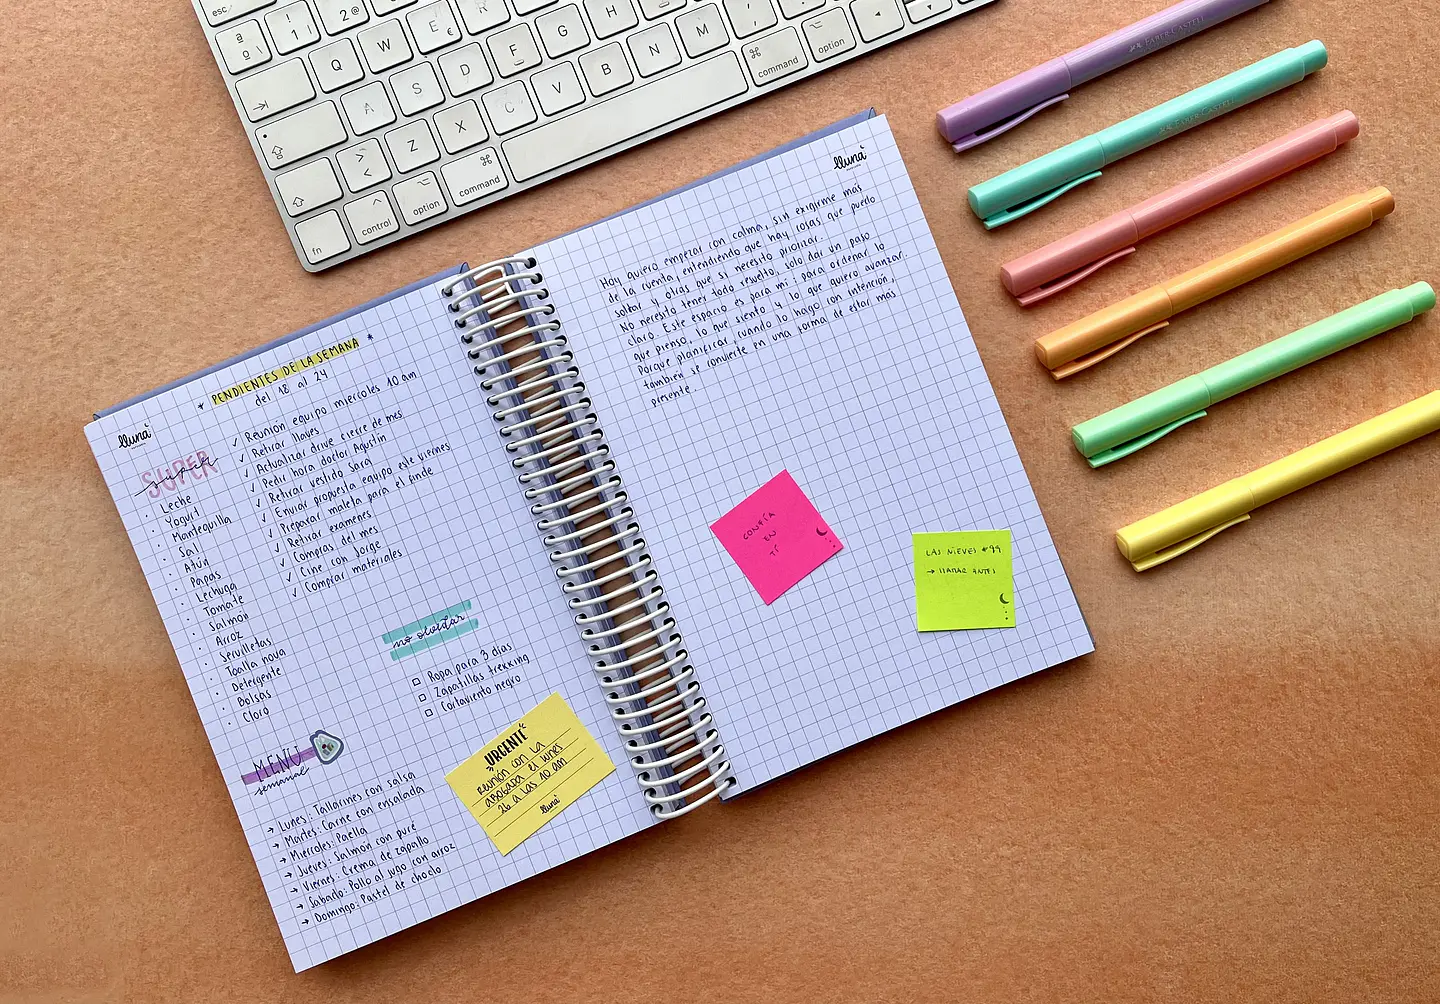 esc
1
2 @
ª
º \
Q
W
E €
R
A
S
D
F
G
H
>
<
Z
X
C
V
B
N
M
fn
control
option
command
command
option
lluna
* PENDIENTES DE LA SEMANA *
del 18 al 24
✓ Reunión equipo miércoles 10 am
✓ Retirar llaves
✓ Actualizar drive cierre de mes
✓ Pedir hora doctor Agustín
✓ Retirar vestido Sara
✓ Enviar propuesta equipo este viernes
✓ Preparar maleta para el finde
✓ Retirar exámenes
✓ Compras del mes
✓ Cine con Jorge
✓ Comprar materiales
SUPER
super
· Leche
· Yogurt
· Mantequilla
· Sal
· Atún
· Papas
· Lechuga
· Tomate
· Salmón
· Arroz
· Servilletas
· Toalla nova
· Detergente
· Bolsas
· Cloro
no olvidar
□ Ropa para 3 días
□ Zapatillas trekking
□ Cortaviento negro
MENU
semanal
→ Lunes: Tallarines con salsa
→ Martes: Carne con ensalada
→ Miércoles: Paella
→ Jueves: Salmón con puré
→ Viernes: Crema de zapallo
→ Sábado: Pollo al jugo con arroz
→ Domingo: Pastel de choclo
URGENTE
Reunión con la
abogada el lunes
26 a las 10 am
lluna
lluna
Hoy quiero empezar con calma, sin exigirme más
de la cuenta, entendiendo que hay cosas que puedo
soltar y otras que sí necesito priorizar.
No necesito tener todo resuelto, solo dar un paso
claro. Este espacio es para mí: para ordenar lo
que pienso, lo que siento y lo que quiero avanzar.
Porque planificar, cuando lo hago con intención,
también se convierte en una forma de estar más
presente.
CONFÍA
EN
TÍ
LAS NIEVES #99
→ LLAMAR ANTES
FABER-CASTELL
FABER-CASTELL